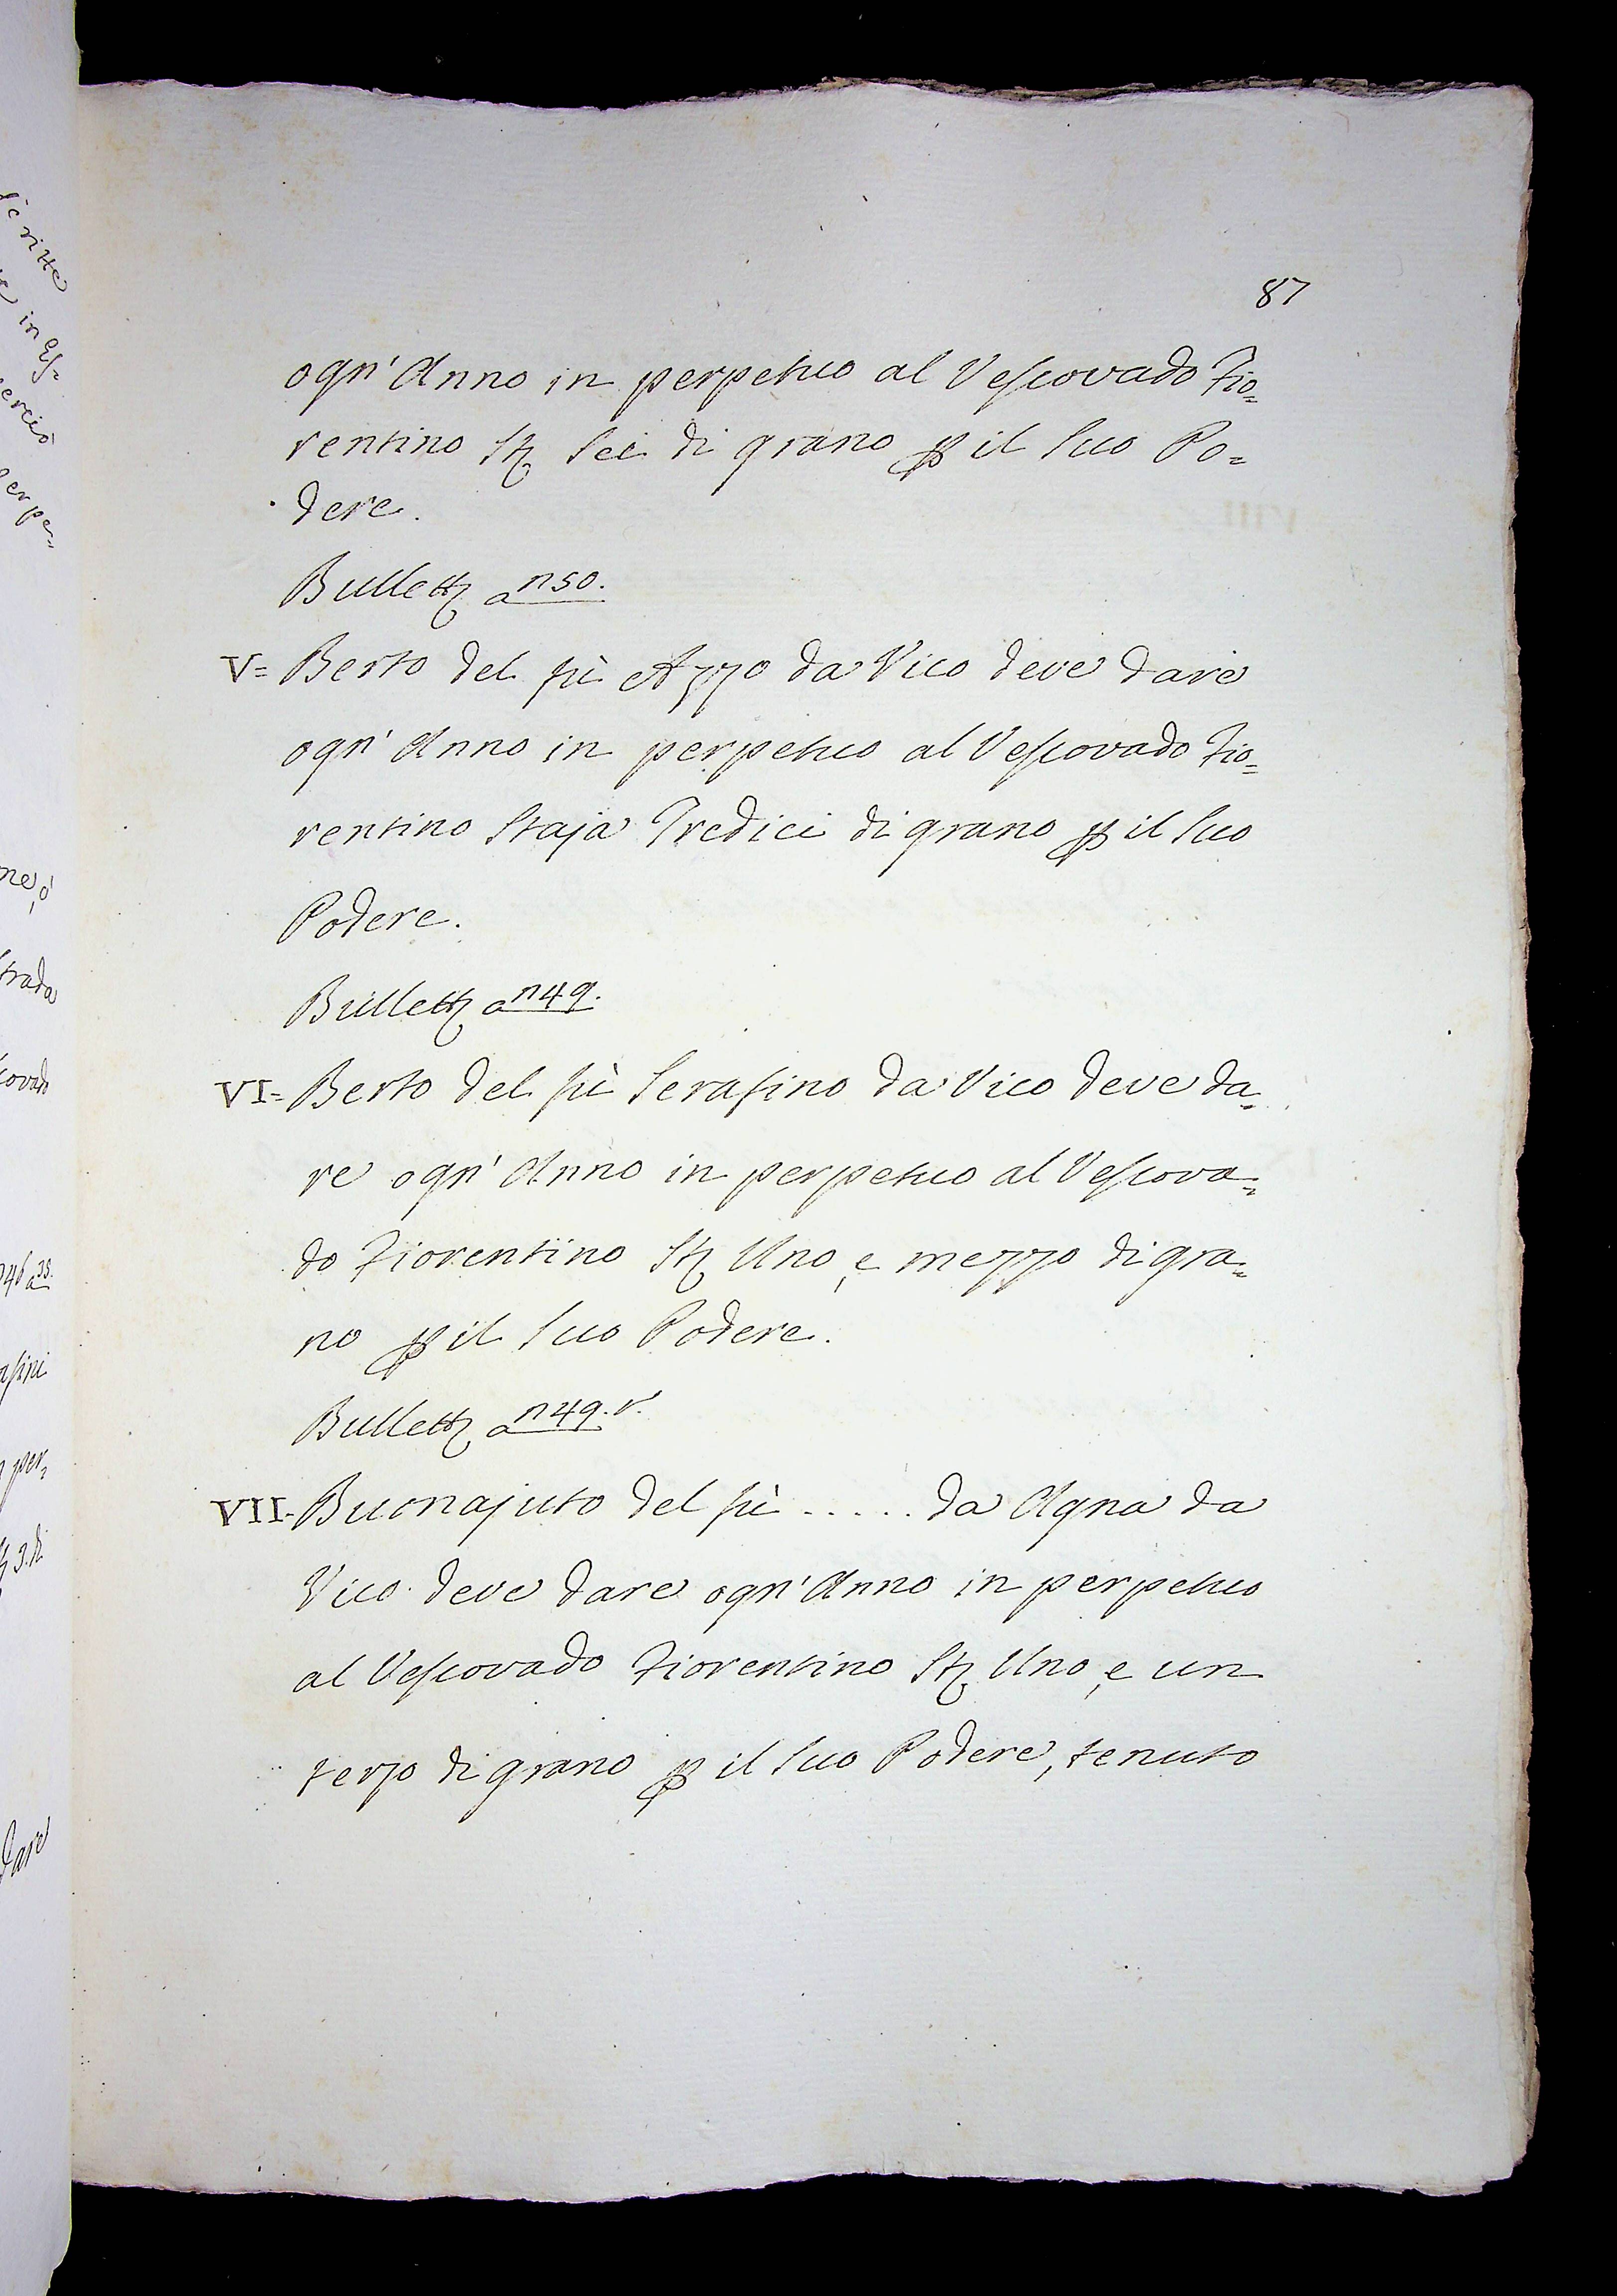 87
ogn' Anno in perpetuo al Vescovado Fio=
rentino St. Sei di grano p il suo Po=
dere.
Bullett. a n 50.
V= Berto del fù Azzo da Vico deve dare
ogn' Anno in perpetuo al Vescovado Fio=
rentino Staja Tredici di grano p il suo
Podere.
Bullett. a n 49.
VI= Berto del fù Serafino da Vico deve da=
re ogn' Anno in perpetuo al Vescova=
do Fiorentino St. Uno, e mezzo di gra=
no p il suo Podere.
Bullett. a n 49. v.
VII- Buonajuto del fù ..... da Agna da
Vico deve dare ogn' Anno in perpetuo
al Vescovado Fiorentino St. Uno, e un
terzo di grano p il suo Podere, tenuto